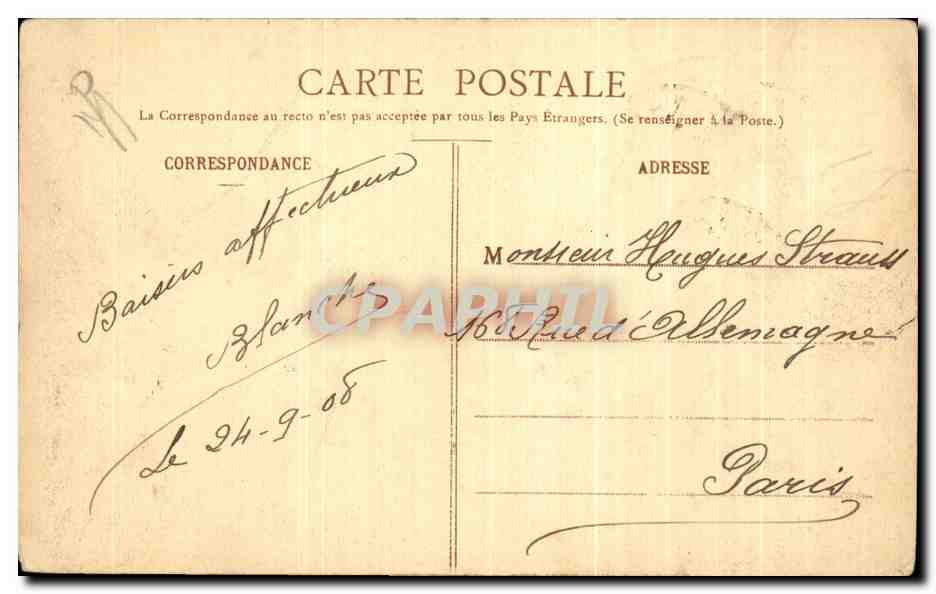 CARTE POSTALE
La Correspondance au recto n'est pas acceptée par tous les Pays Étrangers. (Se renseigner à la Poste.)
CORRESPONDANCE
Baisers affectueux
Blanche
Le 24-9-08
ADRESSE
Monsieur Hugues Strauss
168 Rue d'Allemagne
Paris
CPAPHIL